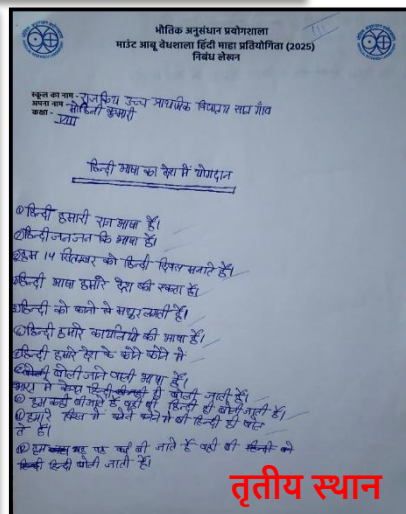 भौतिक अनुसंधान प्रयोगशाला
माउंट आबू वेधशाला हिंदी माहा प्रतियोगिता (2025)
निबंध लेखन
स्कूल का नाम - राजकिय उच्च माध्यमिक विद्यालय साल गाँव
अपना नाम - मोहिनी कुमारी
कक्षा - VIII
हिन्दी भाषा का देश में योगदान
① हिन्दी हमारी राज भाषा हैं।
② हिन्दी जन जन कि भाषा हैं।
हम 14 सितम्बर को हिन्दी दिवस मनाते हैं।
हिन्दी भाषा हमारे देश की एकता हैं।
हिन्दी को कानो से मधुर लगती हैं।
हिन्दी हमारे की भाषा हैं।
हिन्दी हमारे देश के कोने कोने में
बोली जाने वाली भाषा हैं।
में केवल हिन्दी ही बोली जाती हैं।
हम कही भी जाते हैं वहाँ भी हिन्दी ही बोली जाती हैं।
हमारे में कोने कोने में भी हिन्दी ही बोल
ते हैं।
हम भी जाते हैं वही भी
हिन्दी बोली जाती हैं।
तृतीय स्थान